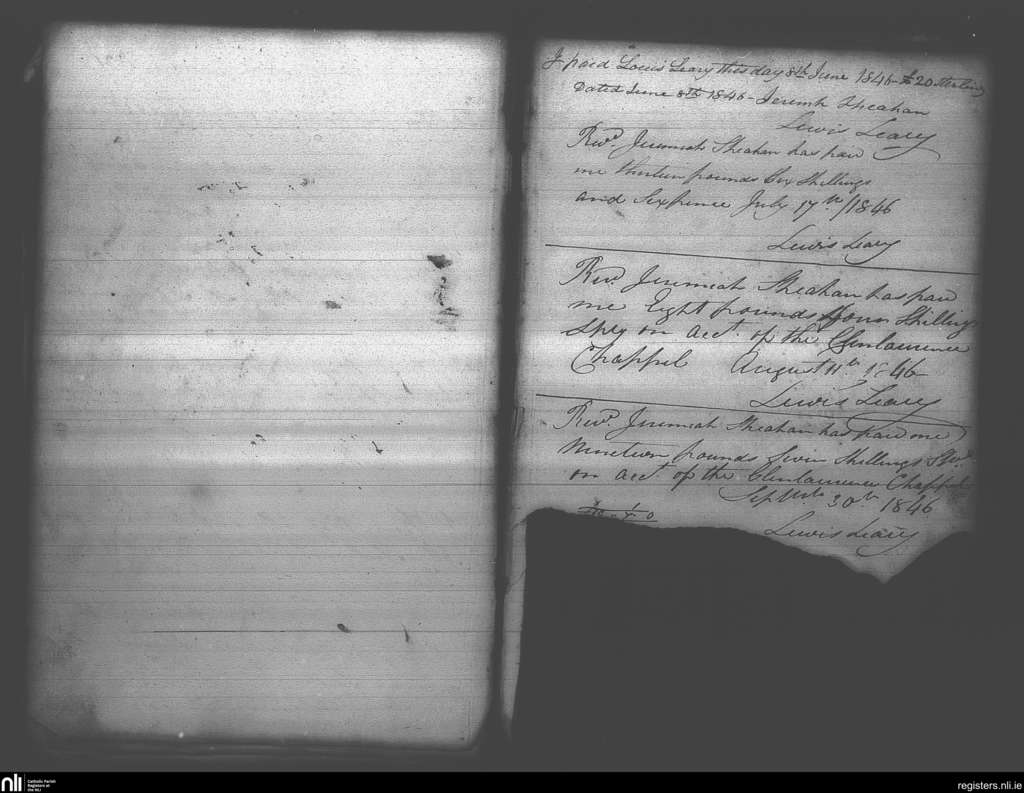 I paid Louis Leary this day 8th June 1846 - £20 Sterling
Dated June 8th 1846 - Jeremh Sheahan
Lewis Leary
Revd. Jeremiah Sheahan has paid
me thirteen pounds Six Shillings
and Sexpence July 17th/1846
Lewis Leary
Revd. Jeremiah Sheahan has paid
me Eight pounds four Shillings
on acct. of the Glenlaurence
Chappel August 11th 1846
Lewis Leary
Revd. Jeremiah Sheahan has paid me
Nineteen pounds Seven Shillings
on acct. of the Glenlaurence Chappel
30th 1846
Lewis Leary
nli
Catholic Parish
Registers at
the NLI
registers.nli.ie